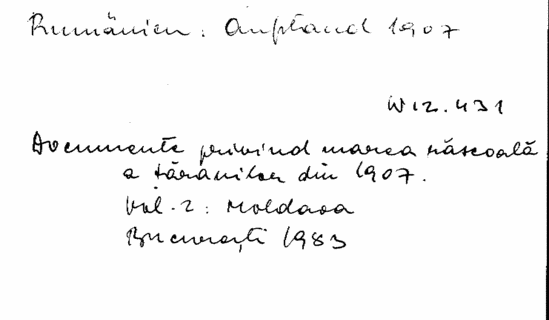 Rumänien: Aufstand 1907
W 12.431
Documente privind marea răscoală
a țăranilor din 1907.
Vol. 2: Moldova
București 1983